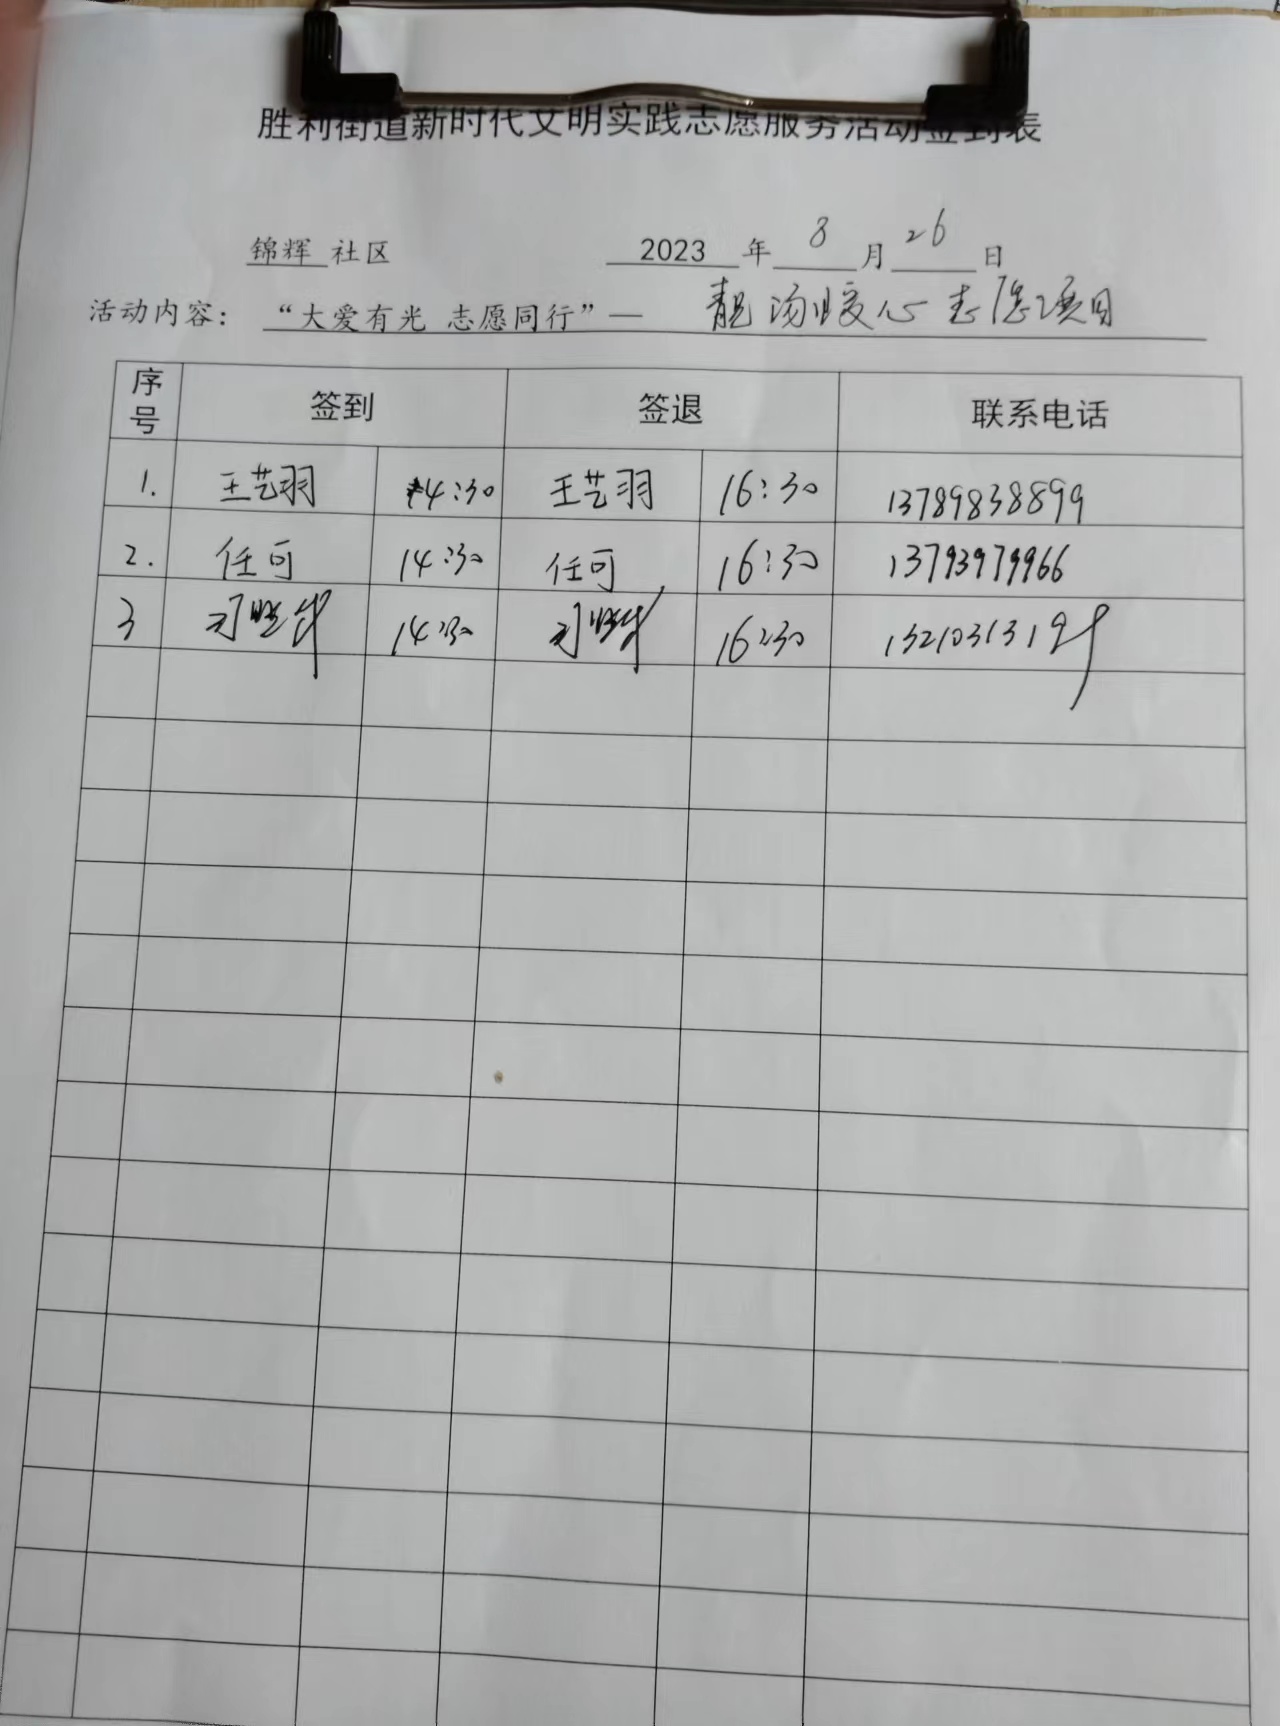 胜利街道新时代文明实践志愿服务活动签到表
锦辉 社区 2023 年 8 月 26 日
活动内容： “大爱有光 志愿同行”— 靓汤暖心志愿项目
序号 签到 签退 联系电话
1. 王艺羽 14:30 王艺羽 16:30 13789838899
2. 任可 14:30 任可 16:30 13793979966
3 14:30 16:30